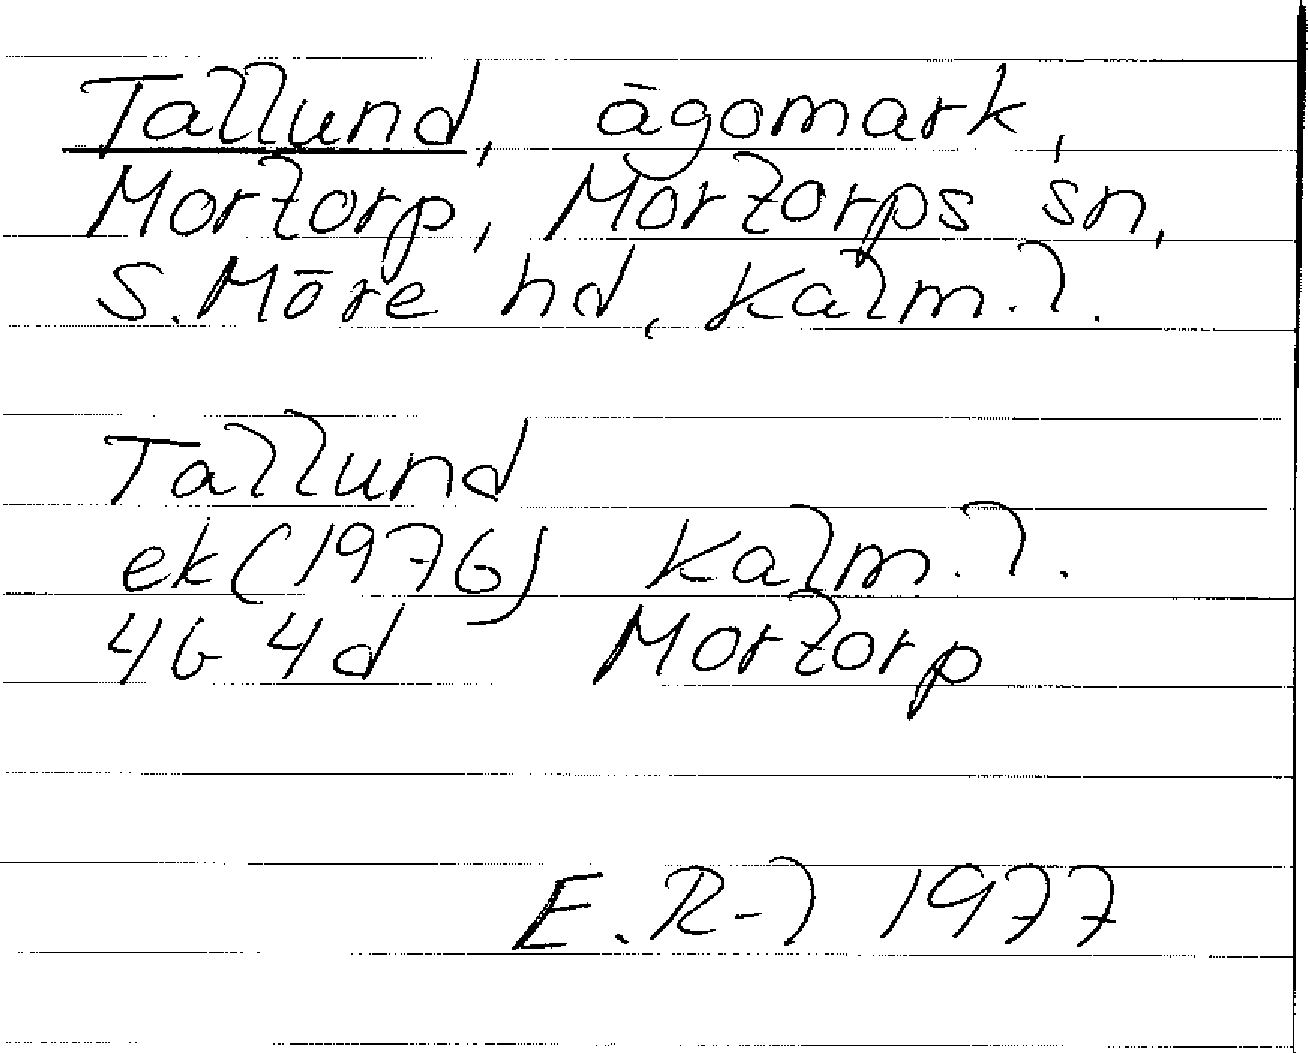 Tallund, ägomark,
Mortorp, Mortorps sn,
S. Möre hd, Kalm. l.
Tallund
ek (1976) Kalm. l.
4G 4d Mortorp
E. R-l 1977